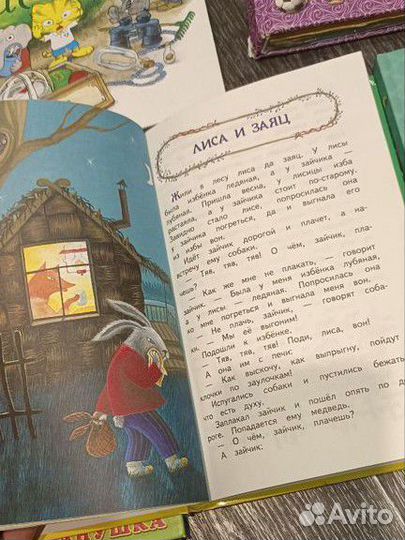 ЛИСА И ЗАЯЦ
Жили в лесу лиса да заяц. У лисы
была избёнка ледяная, а у зайчика —
лубяная. Пришла весна, у лисицы изба
растаяла, а у зайчика стоит по-старому.
Завидно стало лисе, попросилась она
к зайчику погреться, да и выгнала его
из избы вон.
Идёт зайчик дорогой и плачет, а на-
встречу ему собаки.
— Тяв, тяв, тяв! О чём, зайчик, пла-
чешь?
— Как же мне не плакать, — говорит
зайчик. — Была у меня избёнка лубяная,
а у лисы — ледяная. Попросилась она
ко мне погреться и выгнала меня вон.
— Не плачь, зайчик, — говорят соба-
ки. — Мы её выгоним!
Подошли к избёнке.
— Тяв, тяв, тяв! Поди, лиса, вон!
А она им с печи:
— Как выскочу, как выпрыгну, пойдут
клочки по заулочкам!
Испугались собаки и пустились бежать
что есть духу.
Заплакал зайчик и пошёл опять по до-
роге. Попадается ему медведь.
— О чём, зайчик, плачешь?
А зайчик:
Avito